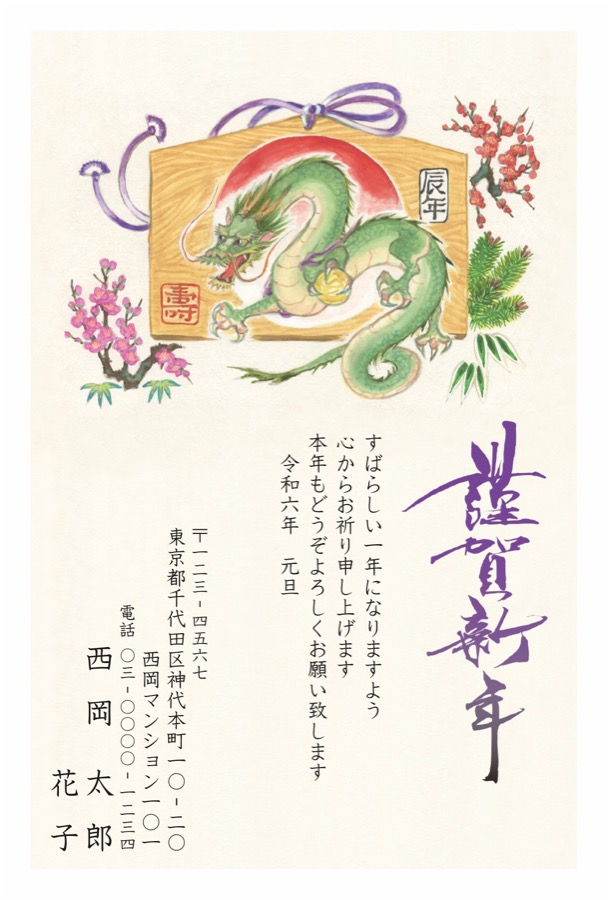 辰年
壽
謹賀新年
すばらしい一年になりますよう
心からお祈り申し上げます
本年もどうぞよろしくお願い致します
令和六年　元旦
〒一二三-四五六七
東京都千代田区神代本町一〇-二〇
西岡マンション一〇一
電話　〇三-〇〇〇〇-一二三四
西岡　太郎
花子